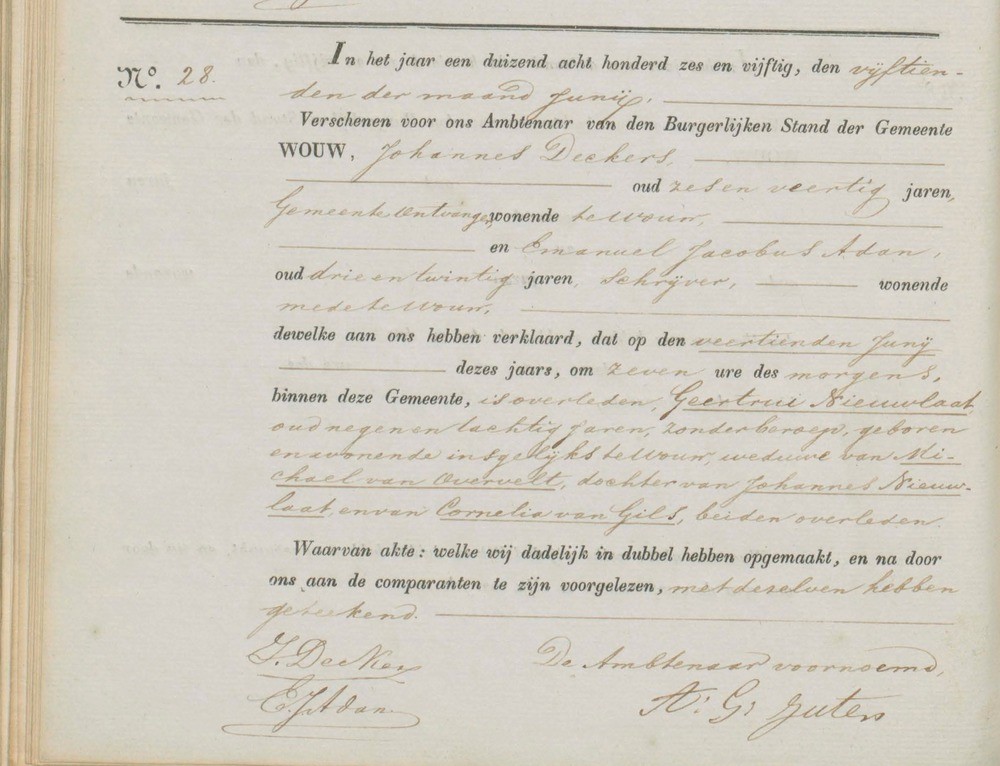 N.o 28.
In het jaar een duizend acht honderd zes en vijftig, den vijftien-
den der maand Junij.
Verschenen voor ons Ambtenaar van den Burgerlijken Stand der Gemeente
WOUW, Johannes Deckers,
oud zes en veertig jaren,
Gemeente Ontvanger, wonende te Wouw,
en Emanuel Jacobus Adan,
oud drie en twintig jaren, Schrijver, wonende
mede te Wouw,
dewelke aan ons hebben verklaard, dat op den veertienden Junij
dezes jaars, om zeven ure des morgens,
binnen deze Gemeente, is overleden, Geertrui Nieuwlaat,
oud negen en tachtig jaren, zonder beroep, geboren
en wonende insgelijks te Wouw, weduwe van Mi-
chael van Overvelt, dochter van Johannes Nieuw-
laat, en van Cornelia van Gils, beiden overleden.
Waarvan akte: welke wij dadelijk in dubbel hebben opgemaakt, en na door
ons aan de comparanten te zijn voorgelezen, met deselven hebben
geteekend.
J. Deckers
De Ambtenaar voornoemd,
E. J. Adan.
A. G. Juten